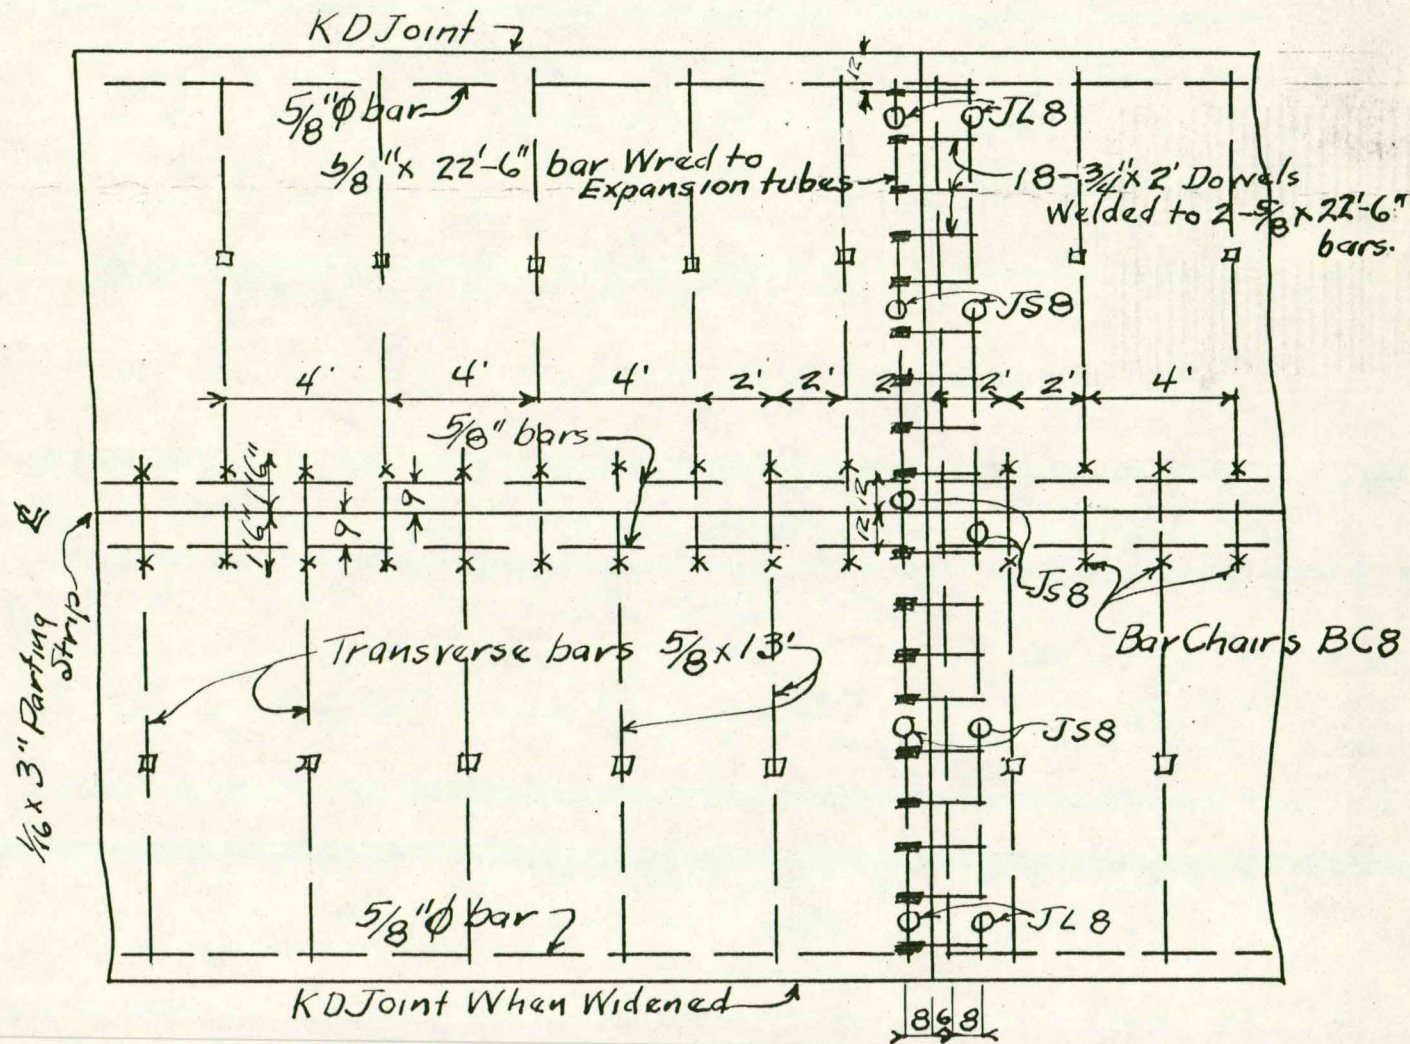 KDJoint
12
5/8"φ bar
JL8
5/8"x 22'-6" bar Wred to
Expansion tubes
18-3/4"x2' Dowels
Welded to 2-5/8x22'-6"
bars.
JS8
4'
4'
4'
2'
2'
2'
2'
2'
4'
5/8" bars
1'6"
1'6"
9
9
12
12
℄
1/16 x 3" Parting
Strip
JS8
Bar Chairs BC8
Transverse bars 5/8x13'
JS8
5/8"φ bar
JL8
KDJoint When Widened
8 6 8